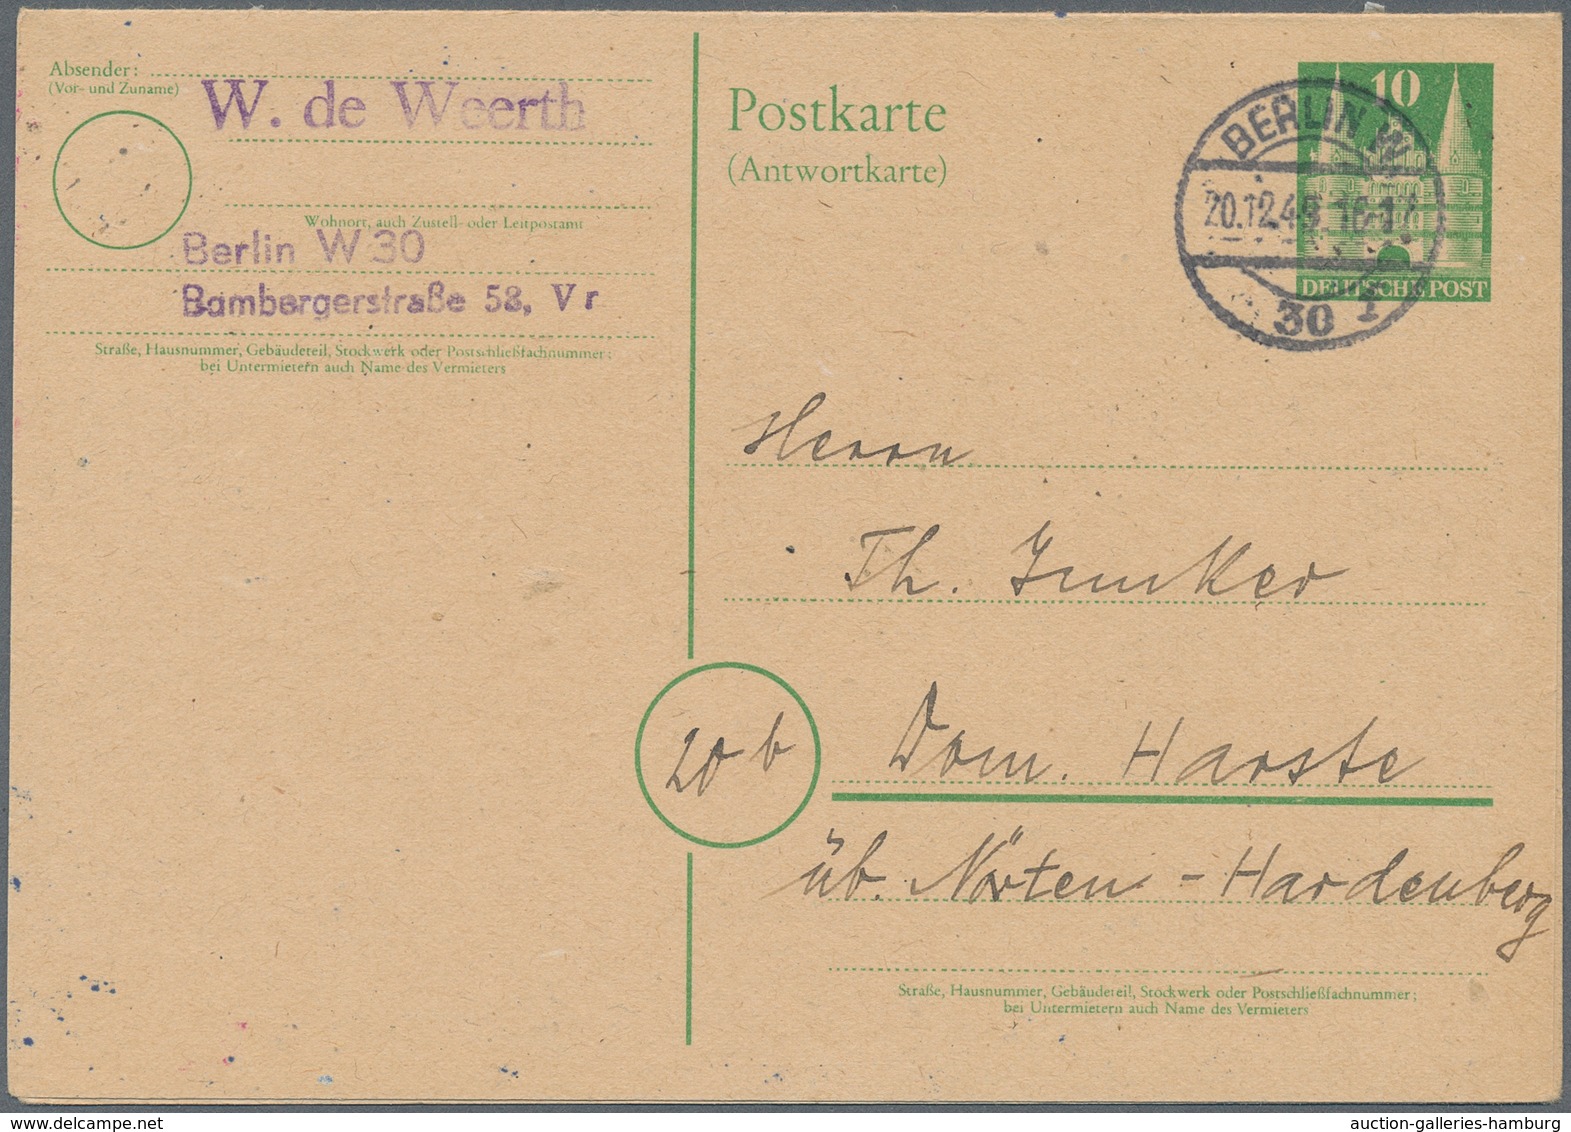 Absender:
(Vor- und Zuname)
W. de Weerth
Wohnort, auch Zustell- oder Leitpostamt
Berlin W 30
Bambergerstraße 58, V r
Straße, Hausnummer, Gebäudeteil, Stockwerk oder Postschließfachnummer;
bei Untermietern auch Name des Vermieters
Postkarte
(Antwortkarte)
10
DEUTSCHE POST
BERLIN W
20.12.49. 16-17
30 I
Herrn
Th. Junker
20b
Dom. Harste
üb. Nörten-Hardenberg
Straße, Hausnummer, Gebäudeteil, Stockwerk oder Postschließfachnummer;
bei Untermietern auch Name des Vermieters
auction-galleries-hamburg